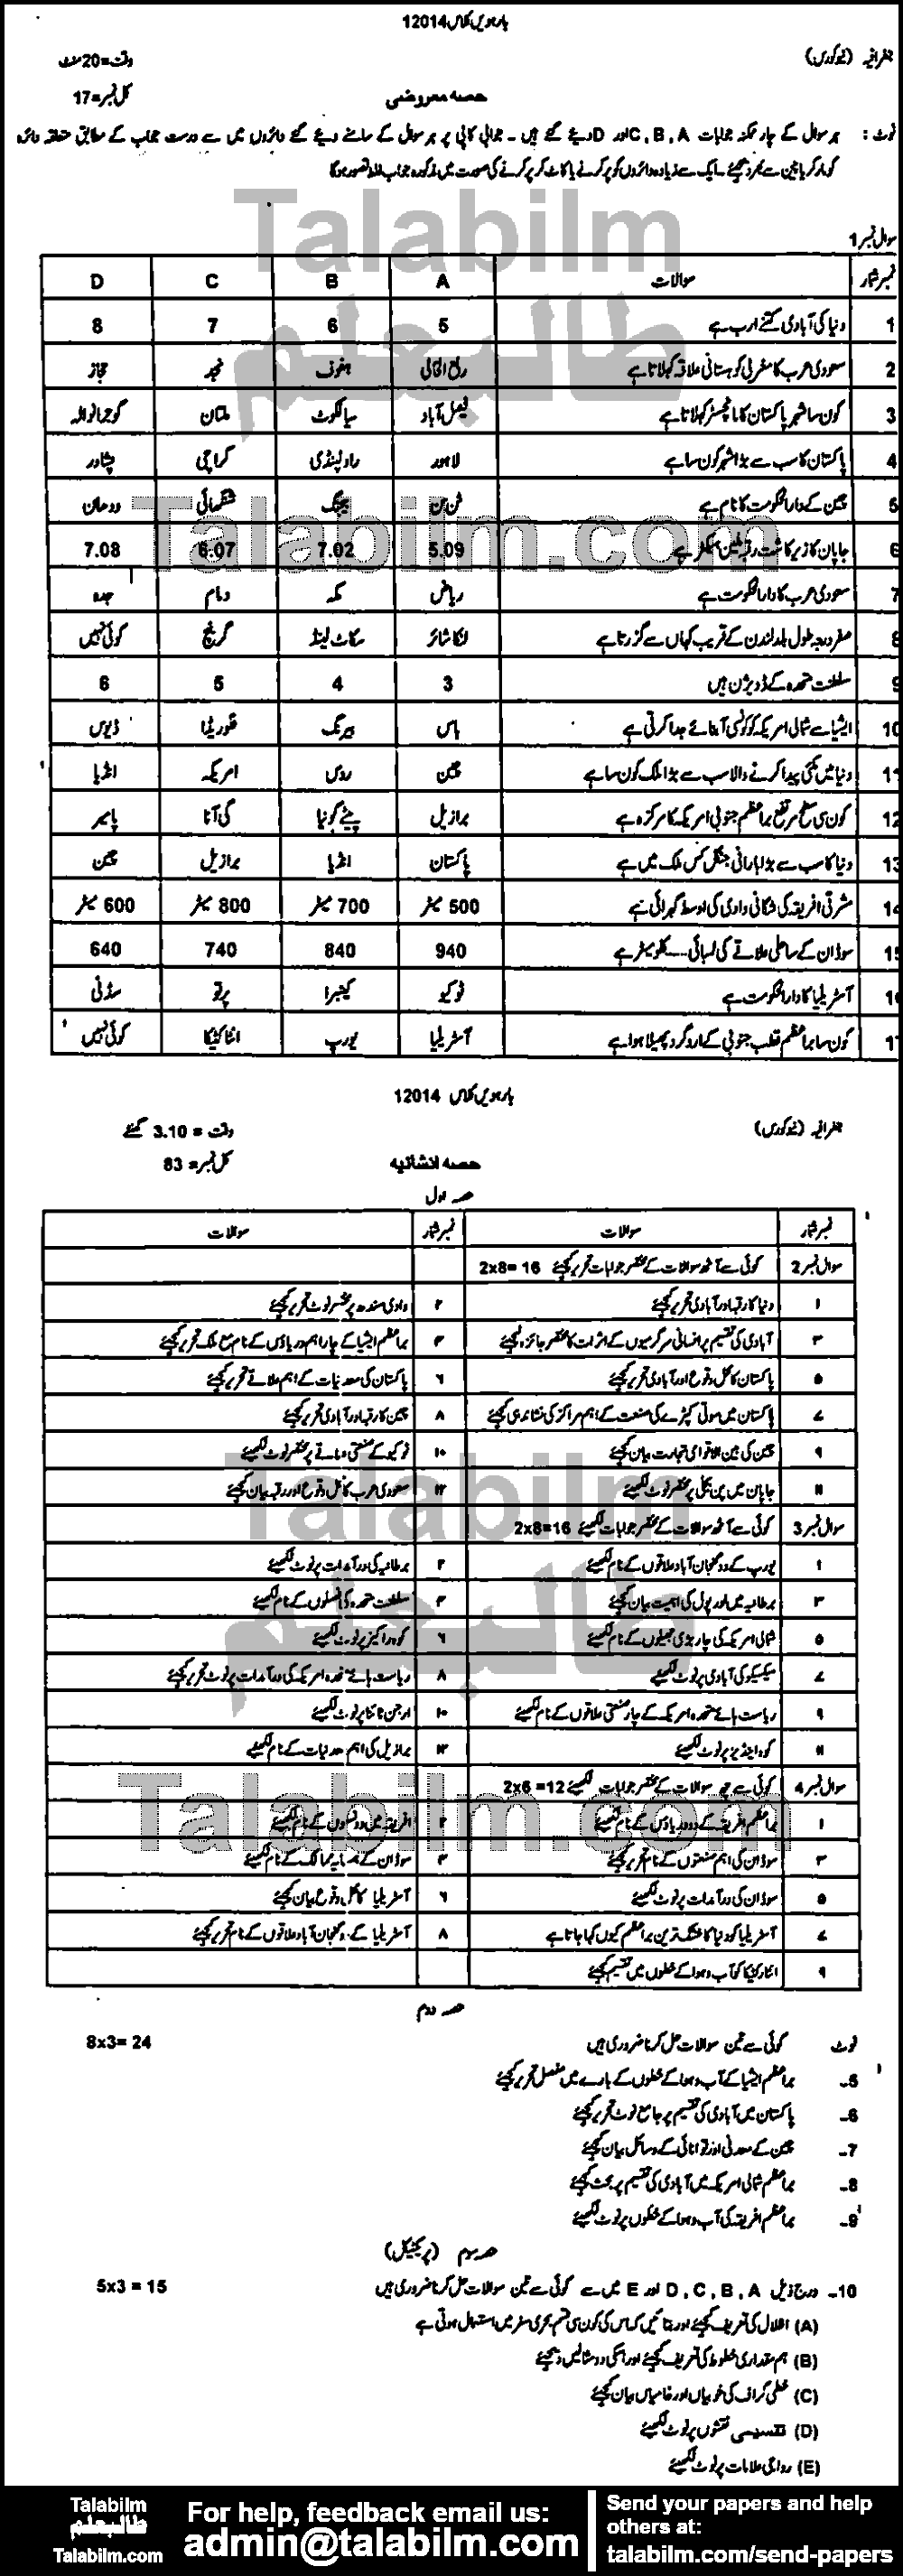 بارہویں کلاس 12014
جغرافیہ (نیوکورس) وقت=20 منٹ
حصہ معروضی کل نمبر=17
نوٹ: ہر سوال کے چار ممکنہ جوابات C, B, A اور D دیئے گئے ہیں۔ جوابی کاپی پر ہر سوال کے سامنے دیئے گئے دائروں میں سے درست جواب کے مطابق متعلقہ دائرہ
کو مارکر یا پین سے بھر دیجیئے۔ ایک سے زیادہ دائروں کو پر کرنے یا کاٹ کر پر کرنے کی صورت میں مذکورہ جواب غلط تصور ہوگا
Talabilm
طالبعلم
سوال نمبر 1
نمبر شمار سوالات A B C D
1 دنیا کی آبادی کتنے ارب ہے 5 6 7 8
2 سعودی عرب کا مغربی کوہستانی علاقہ کہلاتا ہے ربع الخالی ہفوف نجد حجاز
3 کون سا شہر پاکستان کا مانچسٹر کہلاتا ہے فیصل آباد سیالکوٹ ملتان گوجرانوالہ
4 پاکستان کا سب سے بڑا شہر کون سا ہے لاہور راولپنڈی کراچی پشاور
5 چین کے دارالحکومت کا نام ہے بیجنگ شنگھائی ووہان
Talabilm.com
6 جاپان کا زیر کاشت رقبہ ملین ہیکٹر ہے 5.09 7.02 6.07 7.08
7 سعودی عرب کا دارالحکومت ہے ریاض مکہ دمام جدہ
8 صفر درجہ طول بلد لندن کے قریب کہاں سے گزرتا ہے لنکا شائر سکاٹ لینڈ گرینچ کوئی نہیں
9 سلطنت متحدہ کے ڈویژن ہیں 3 4 5 6
10 ایشیا سے شمالی امریکہ کو کونسی آبنائے جدا کرتی ہے باس بیرنگ فلوریڈا ڈیوس
11 دنیا میں مکئی پیدا کرنے والا سب سے بڑا ملک کون سا ہے چین روس امریکہ انڈیا
12 کون سی سطح مرتفع براعظم جنوبی امریکہ کا مرکزہ ہے برازیل پیٹے گونیا گی آنا پامیر
13 دنیا کا سب سے بڑا بارانی جنگل کس ملک میں ہے پاکستان انڈیا برازیل چین
14 مشرقی افریقہ کی شگافی وادی کی اوسط گہرائی ہے 500 میٹر 700 میٹر 800 میٹر 600 میٹر
15 سوڈان کے ساحلی علاقے کی لمبائی ---- کلومیٹر ہے 940 840 740 640
16 آسٹریلیا کا دارالحکومت ہے ٹوکیو کینبرا پرتھ سڈنی
17 کون سا براعظم قطب جنوبی کے اردگرد پھیلا ہوا ہے آسٹریلیا یورپ انٹارکٹیکا کوئی نہیں
بارہویں کلاس 12014
جغرافیہ (نیوکورس) وقت = 3.10 گھنٹے
حصہ انشائیہ کل نمبر= 83
حصہ اول
نمبر شمار سوالات نمبر شمار سوالات
سوال نمبر 2 کوئی سے آٹھ سوالات کے مختصر جوابات تحریر کیجئے 2x8= 16
۱ دنیا کا رقبہ اور آبادی تحریر کیجئے ۲ وادی سندھ پر مختصر نوٹ تحریر کیجئے
۳ آبادی کی تقسیم پر انسانی سرگرمیوں کے اثرات کا مختصر جائزہ لیجئے ۴ براعظم ایشیا کے چار اہم دریاؤں کے نام مع ملک تحریر کیجئے
۵ پاکستان کا محل وقوع اور آبادی تحریر کیجئے ۶ پاکستان کی معدنیات کے اہم علاقے تحریر کیجئے
۷ پاکستان میں سوتی کپڑے کی صنعت کے اہم مراکز کی نشاندہی کیجئے ۸ چین کا رقبہ اور آبادی تحریر کیجئے
۹ چین کی بین الاقوامی تجارت بیان کیجئے ۱۰ ٹوکیو کے صنعتی علاقے پر مختصر نوٹ لکھیئے
۱۱ جاپان میں پن بجلی پر مختصر نوٹ لکھیئے ۱۲ سعودی عرب کا محل وقوع اور رقبہ بیان کیجئے
Talabilm
طالبعلم
سوال نمبر 3 کوئی سے آٹھ سوالات کے مختصر جوابات لکھیئے 2x8=16
۱ یورپ کے دو گنجان آباد علاقوں کے نام لکھیئے ۲ برطانیہ کی درآمدات پر نوٹ لکھیئے
۳ برطانیہ میں لور پول کی اہمیت بیان کیجئے ۴ سلطنت متحدہ کی فصلوں کے نام لکھیئے
۵ شمالی امریکہ کی چار بڑی جھیلوں کے نام لکھیئے ۶ کوہ راکیز پر نوٹ لکھیئے
۷ میکسیکو کی آبادی پر نوٹ لکھیئے ۸ ریاست ہائے متحدہ امریکہ کی درآمدات پر نوٹ تحریر کیجئے
۹ ریاست ہائے متحدہ امریکہ کے چار صنعتی علاقوں کے نام لکھیئے ۱۰ ارجن ٹائنا پر نوٹ لکھیئے
۱۱ کوہ اینڈیز پر نوٹ لکھیئے ۱۲ برازیل کی اہم معدنیات کے نام لکھیئے
سوال نمبر 4 کوئی سے چھ سوالات کے مختصر جوابات لکھیئے 2x6 =12
Talabilm.com
۱ براعظم افریقہ کے دو دریاؤں کے نام لکھیئے ۲ افریقہ میں دو نسلوں کے نام لکھیئے
۳ سوڈان کی اہم صنعتوں کے نام تحریر کیجئے ۴ سوڈان کے ہمسایہ ممالک کے نام لکھیئے
۵ سوڈان کی درآمدات پر نوٹ لکھیئے ۶ آسٹریلیا کا محل وقوع بیان کیجئے
۷ آسٹریلیا کو دنیا کا خشک ترین براعظم کیوں کہا جاتا ہے ۸ آسٹریلیا کے دو گنجان آباد علاقوں کے نام تحریر کیجئے
۹ انٹارکٹیکا کو آب و ہوا کے خطوں میں تقسیم کیجئے
حصہ دوم
نوٹ کوئی سے تین سوالات حل کرنا ضروری ہیں 8x3= 24
5۔ براعظم ایشیا کے آب و ہوا کے خطوں کے بارے میں مفصل تحریر کیجئے
6۔ پاکستان میں آبادی کی تقسیم پر جامع نوٹ تحریر کیجئے
7۔ چین کے معدنی اور توانائی کے وسائل بیان کیجئے
8۔ براعظم شمالی امریکہ میں آبادی کی تقسیم پر بحث کیجئے
9۔ براعظم افریقہ کی آب و ہوا کے خطوں پر نوٹ لکھیئے
حصہ سوم (پریکٹیکل)
10۔ درج ذیل D, C, B, A اور E میں سے کوئی سے تین سوالات حل کرنا ضروری ہیں 5x3 = 15
(A) اظلال کی تعریف کیجئے اور بتائیں کہ اس کی کون سی قسم بحری سفر میں استعمال ہوتی ہے
(B) ہم مقداری خطوط کی تعریف کیجئے اور اسکی دو مثالیں دیجئے
(C) خطی گراف کی خوبیاں اور خامیاں بیان کیجئے
(D) تقسیمی نقشوں پر نوٹ لکھیئے
(E) رواجی علامات پر نوٹ لکھیئے
Talabilm
طالبعلم
Talabilm.com
For help, feedback email us:
admin@talabilm.com
Send your papers and help
others at:
talabilm.com/send-papers